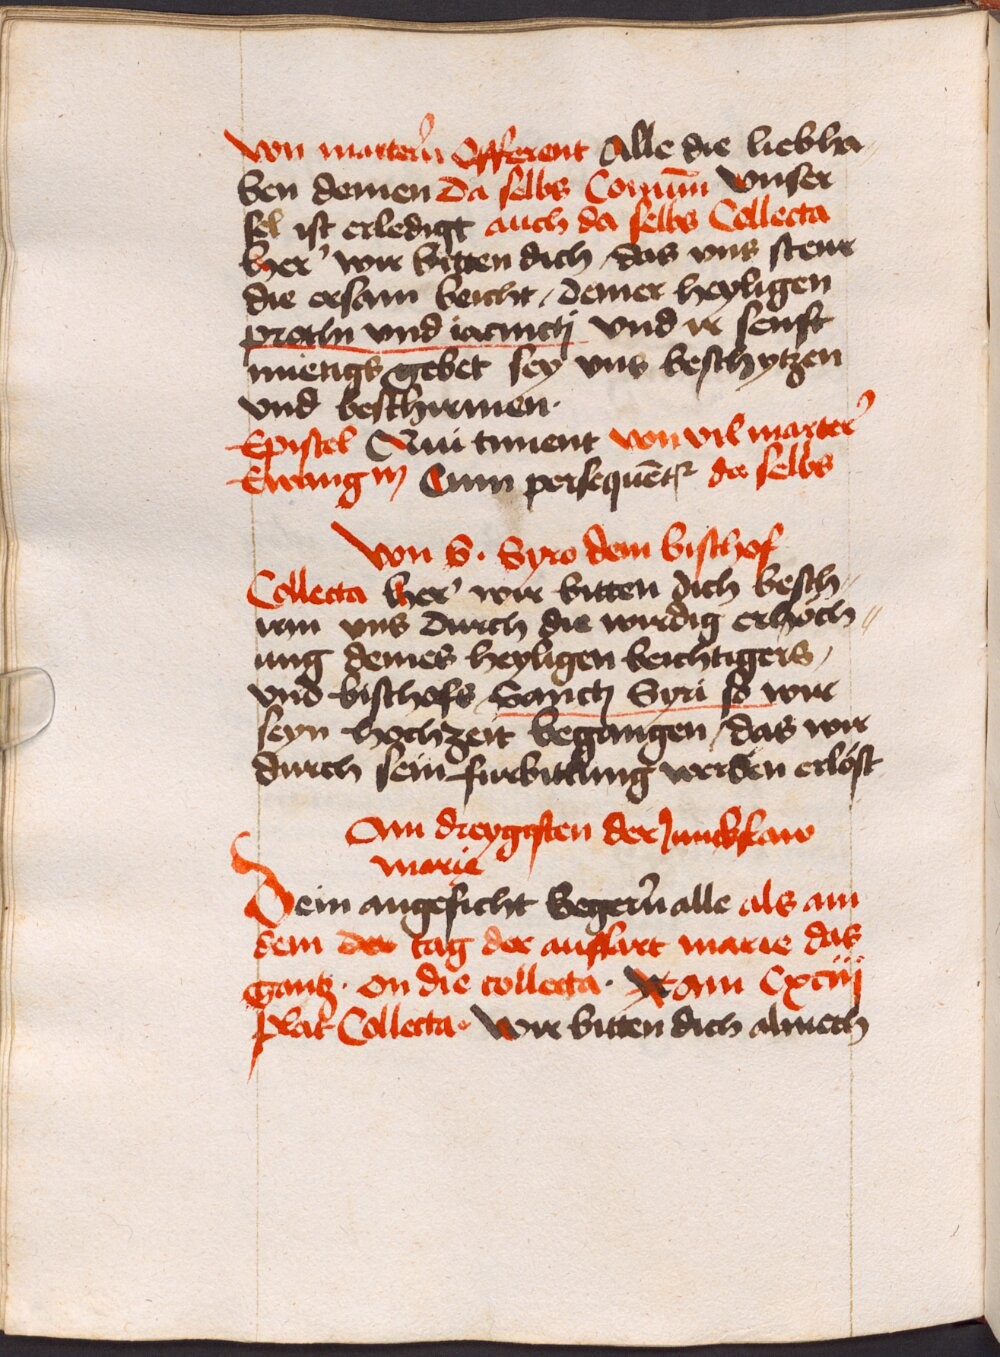 von martern̄ Offerent Alle die liebha
ben deinen Da selbs Comūm Vnser
sel ist erledigt auch da selbs Collecta
her' wir bitten dich / das vns steur
die ersam beicht / deiner heyligen
prothi vnd iacincti vnd ir senft
mietigs gebet sey vns beschytzen
vnd beschirmen.
Epistel Qui timent von vil marter'
Ewang m̄ Cum persequēt' da selbs
Von S. Syro dem bischof
Collecta her' wir bitten dich besch//
irm vns durch die wirdig erhöch//
ung deines heyligen beichtigers /
vnd bischofs Sancti Syri so wir
seyn hochzeit begangen / das wir
durch sein furbittung werden erlöst
Am dreyggsten der Junckfraw
marie
Dein angesicht begern̄ alle als am
dem der tag der auffart marie das
gantz. on die collecta. am Cxciiij
plat Collecta. Wir bitten dich almech